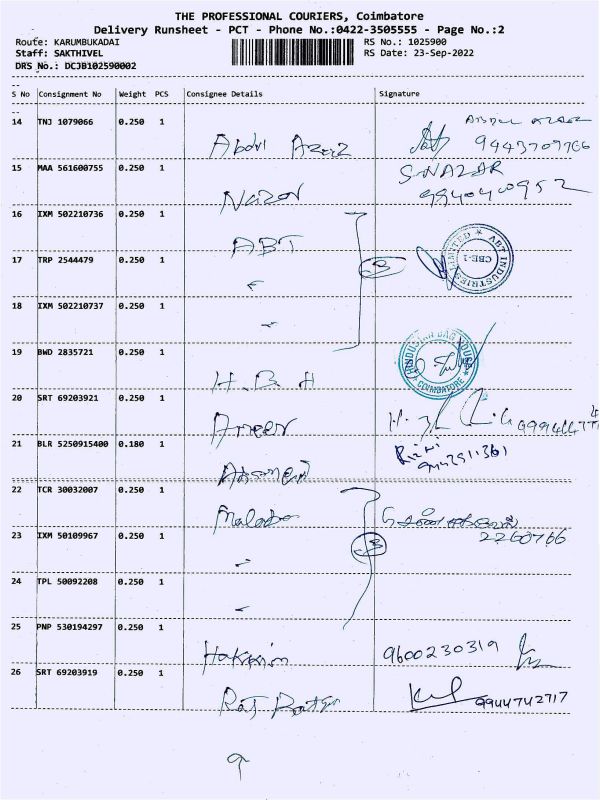 THE PROFESSIONAL COURIERS, Coimbatore
Delivery Runsheet - PCT - Phone No.:0422-3505555 - Page No.:2
Route: KARUMBUKADAI RS No.: 1025900
Staff: SAKTHIVEL RS Date: 23-Sep-2022
DRS No.: DCJB102590002
S No Consignment No Weight PCS Consignee Details Signature
14 TNJ 1079066 0.250 1
Abdul Azeez 9443709766
15 MAA 561600755 0.250 1 S.NAZAR
Nazar 9940400952
16 IXM 502210736 0.250 1
ABT
ABT INDUSTRIES LIMITED
CBE-1
17 TRP 2544479 0.250 1 3
18 IXM 502210737 0.250 1
19 BWD 2835721 0.250 1
HINDUSTAN BAG HOUSE
COIMBATORE
H.B.H
20 SRT 69203921 0.250 1
Ameer
21 BLR 5250915400 0.180 1
22 TCR 30032007 0.250 1
Malabar
23 IXM 50109967 0.250 1 2260766
3
24 TPL 50092208 0.250 1
25 PNP 530194297 0.250 1
Hakkim 9600230319
26 SRT 69203919 0.250 1
Raj 9944742717